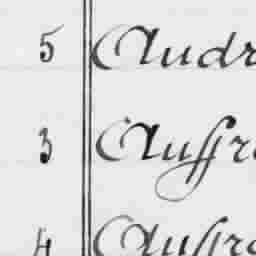 5 Audr
3 Auffr
4 Auffr